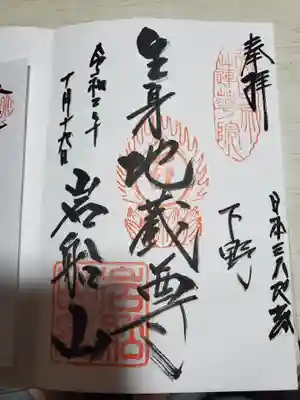 奉拝
日本三大地蔵
下野
生身地蔵尊
岩船山
令和二年
十月十六日